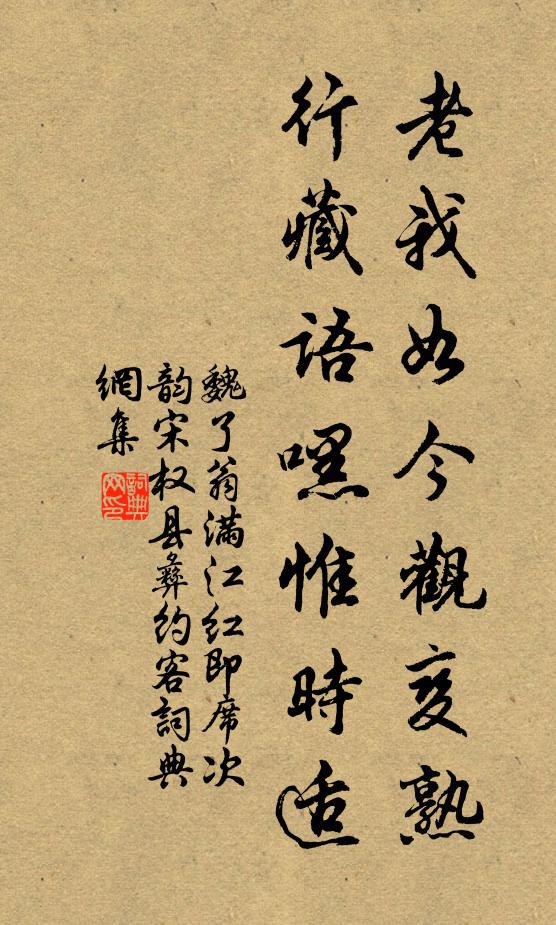 老我如今觀变熟
行藏語嘿惟時适
魏了翁满江红即席次
韵宋权县彝约客詞典
網集
詞典
网印